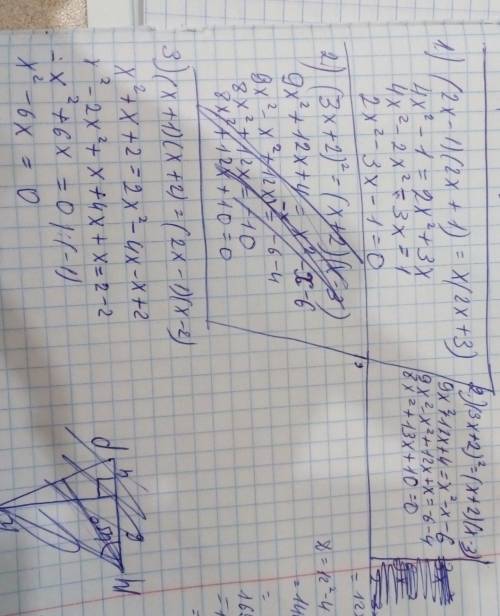 1) (2x-1)(2x+1) = x(2x+3)
4x² - 1 = 2x² + 3x
4x² - 2x² = 3x = 1
2x² - 3x - 1 = 0
2) (3x+2)² = (x+2)(x-3)
9x² + 12x + 4 = x² - x - 6
9x² - x² + 12x = -6-4
8x² + 12x = -10
8x² + 12x + 10 = 0
2) (3x+2)² = (x+2)(x-3)
9x² + 12x + 4 = x² - x - 6
9x² - x² + 12x + x = -6-4
8x² + 13x + 10 = 0
3) (x+1)(x+2) = (2x-1)(x-2)
x² + x + 2 = 2x² - 4x - x + 2
x² - 2x² + x + 4x + x = 2-2
-x² + 6x = 0 |(-1)
x² - 6x = 0